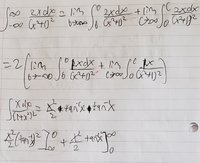 ∫_{-∞}^{∞} 2xdx/(x²+1)² = lim_{b→-∞} ∫_b^0 2xdx/(x²+1)² + lim_{c→∞} ∫_0^c 2xdx/(x²+1)²
= 2( lim_{b→-∞} ∫_b^0 xdx/(x²+1)² + lim_{c→∞} ∫_0^c x/(x²+1)² )
∫ xdx/(1+x²)² = x²/2 tan⁻¹x tan⁻¹x
x²/2 (tan⁻¹x)² ]_0^∞ + x²/2 tan⁻¹x ]_0^∞